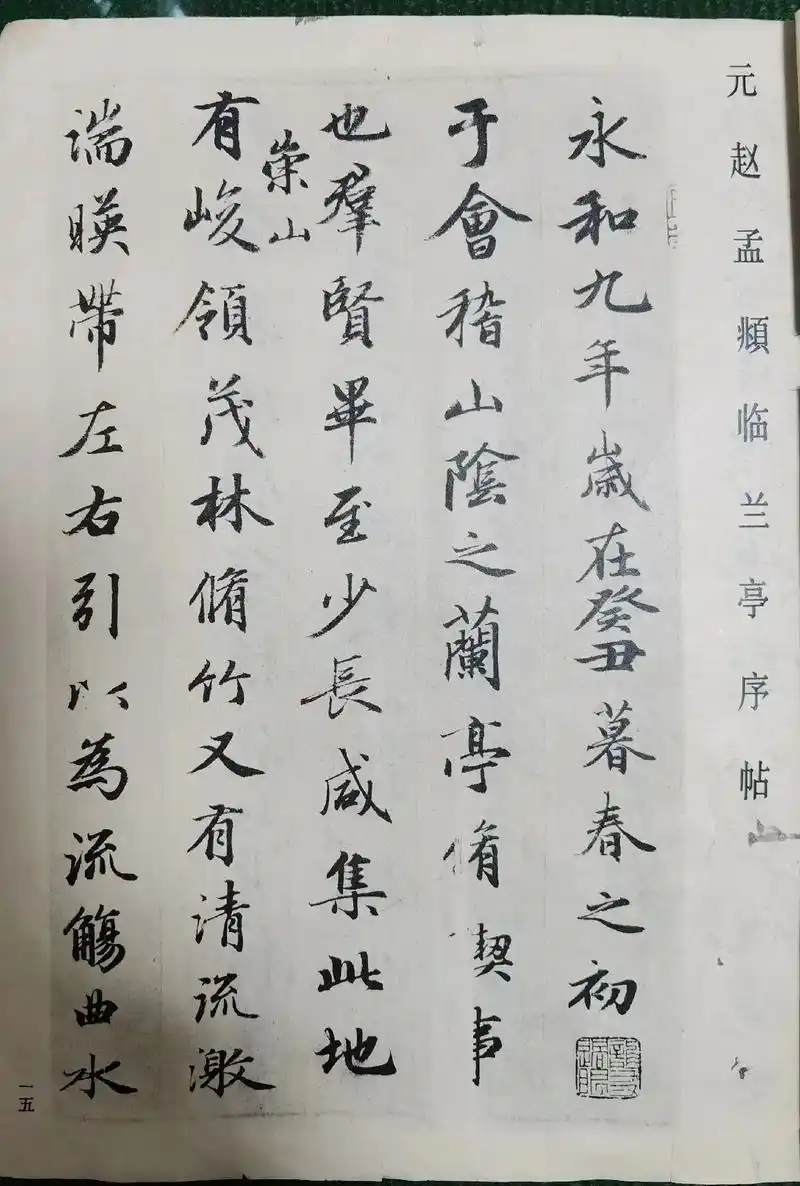 元赵孟頫临兰亭序帖
永和九年歲在癸丑暮春之初
于會稽山陰之蘭亭脩禊事
也羣賢畢至少長咸集此地
有崇山峻領茂林脩竹又有清流激
湍暎帶左右引以為流觴曲水
一五